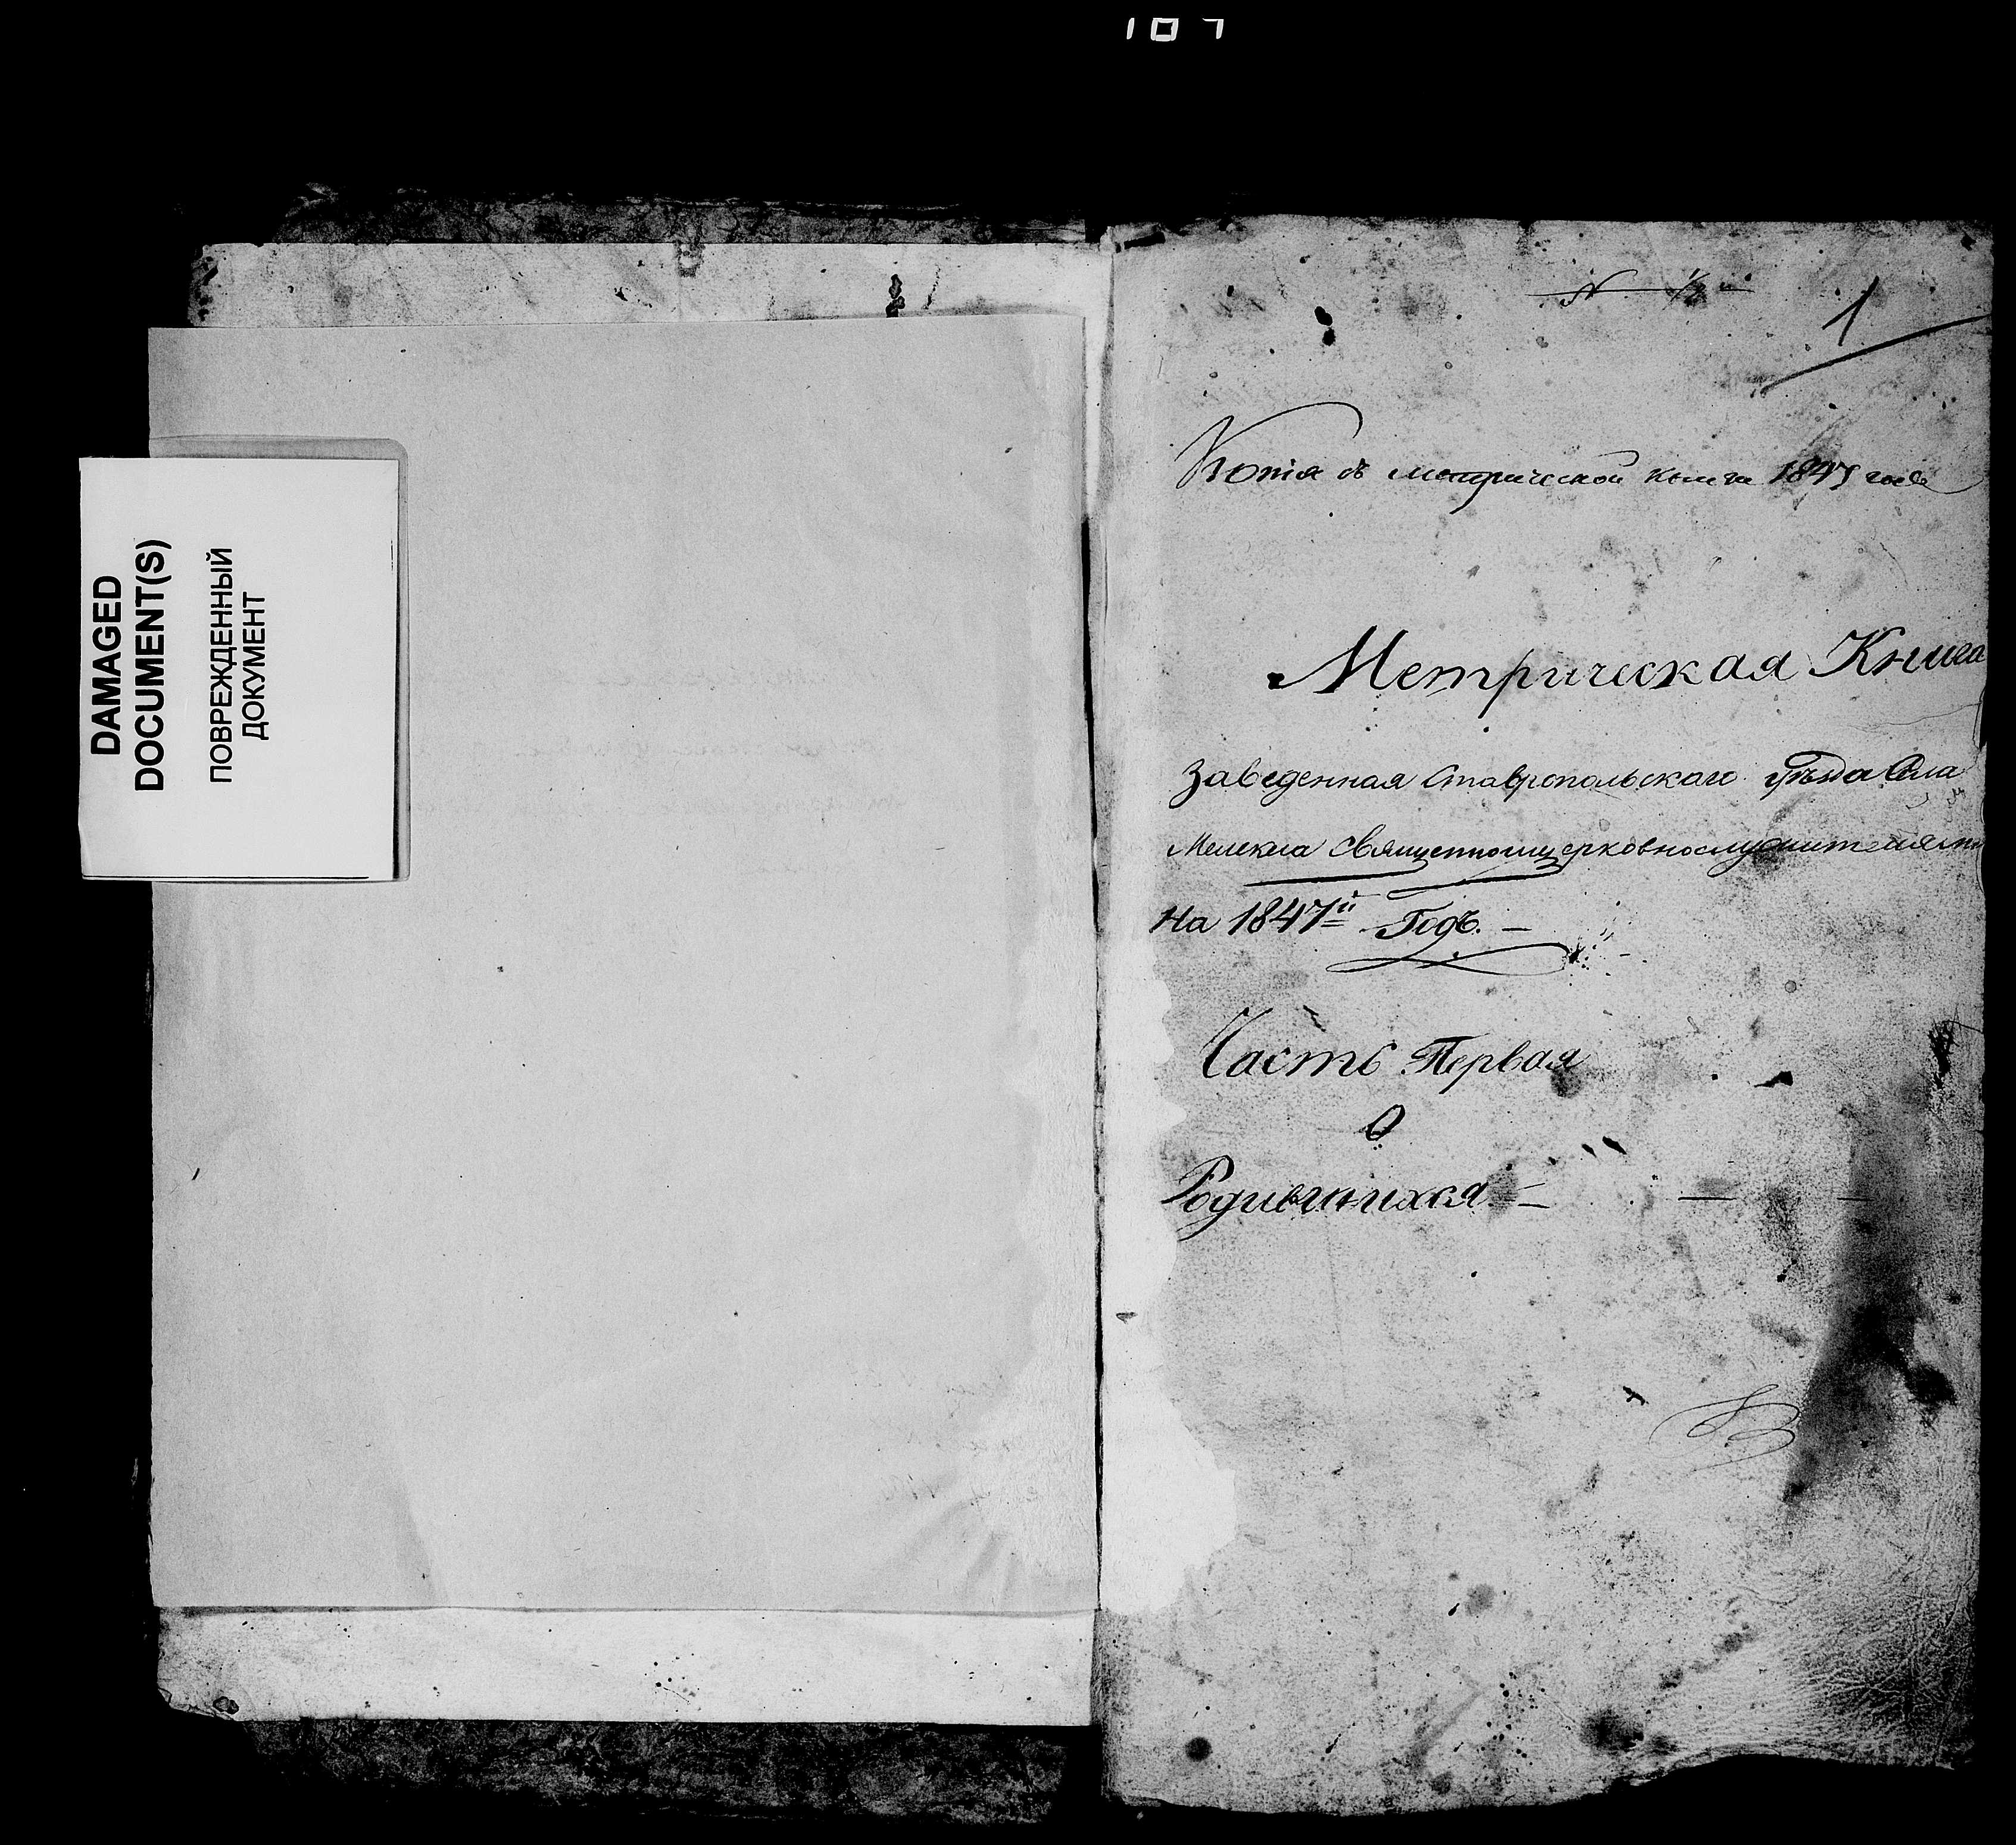 107
DAMAGED
DOCUMENT(S)
ПОВРЕЖДЕННЫЙ
ДОКУМЕНТ
1
Копія съ метрической книги 1847 года
Метрическая Книга
Заведенная Ставропольскаго Уѣзда Села
Мелекеса священноцерковнослужителями
На 1847й Годъ. —
Часть Первая
О
Родившихся. —